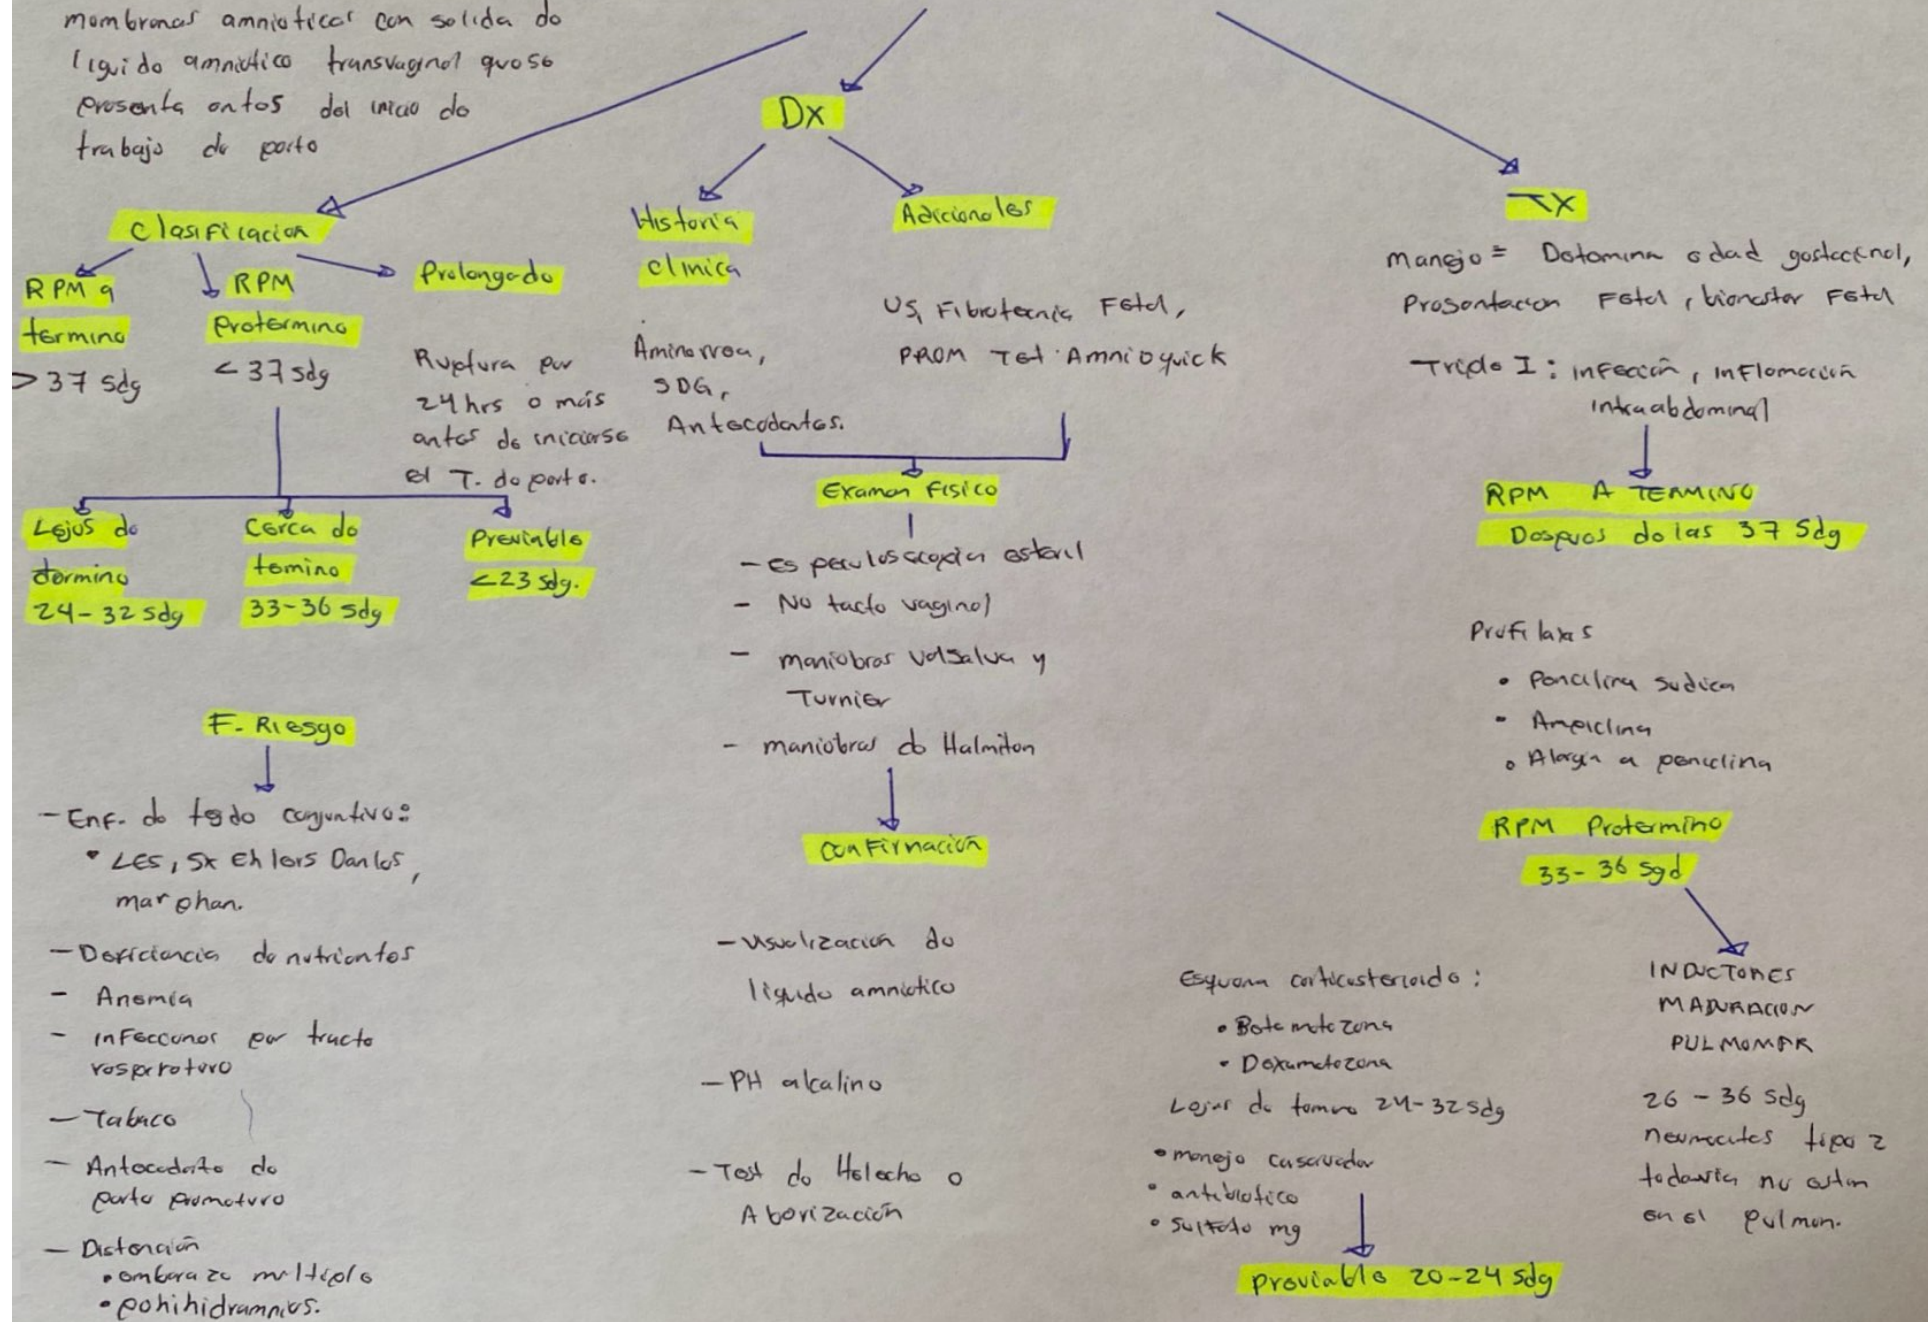 membranas amnioticas con salida de
liquido amniotico transvaginal que se
presenta antes del inicio de
trabajo de parto
Clasificacion
RPM a
termino
> 37 sdg
RPM
Pretermino
< 37 sdg
Prolongado
Ruptura por
24 hrs o más
antes de iniciarse
el T. de parto.
Lejos de
termino
24-32 sdg
Cerca de
temino
33-36 sdg
Previable
<23 sdg.
F. Riesgo
- Enf. de tejido conjuntivo:
• LES, Sx Ehlers Danlos,
marphan.
- Deficiencia de nutrientes
- Anemia
- infecciones por tracto
respiratorio
- Tabaco
- Antecedente de
parto prematuro
- Distención
• embarazo multiple
• pohihidramnios.
Dx
Historia
clinica
Aminorrea,
SDG,
Antecedentes.
Adicionales
US, Fibrotecnia Fetal,
PROM Tet Amnioquick
Examen Fisico
- Especuloscopia esteril
- No tacto vaginal
- maniobras Valsalva y
Turnier
- maniobras de Halmiton
Confirmación
- visualización de
liquido amniotico
- PH alcalino
- Test de Helecho o
Aborización
TX
manejo = Detemina edad gestacional,
Presentacion Fetal, bienestar Fetal
Triple I: infección, inflamación
intraabdominal
RPM A TERMINO
Despues de las 37 Sdg
Profilaxis
• Penicilina sudica
• Ampiclina
• Alergia a penicilina
RPM Pretermino
33-36 sgd
INDUCTORES
MADURACION
PULMONAR
26 - 36 sdg
neumocitos tipo 2
todavia no estan
en el pulmon.
Esquema corticosteroide:
• Betametazona
• Dexametazona
Lejos de temino 24-32 sdg
• manejo conservador
• antibiotico
• Sulfato mg
previable 20-24 sdg